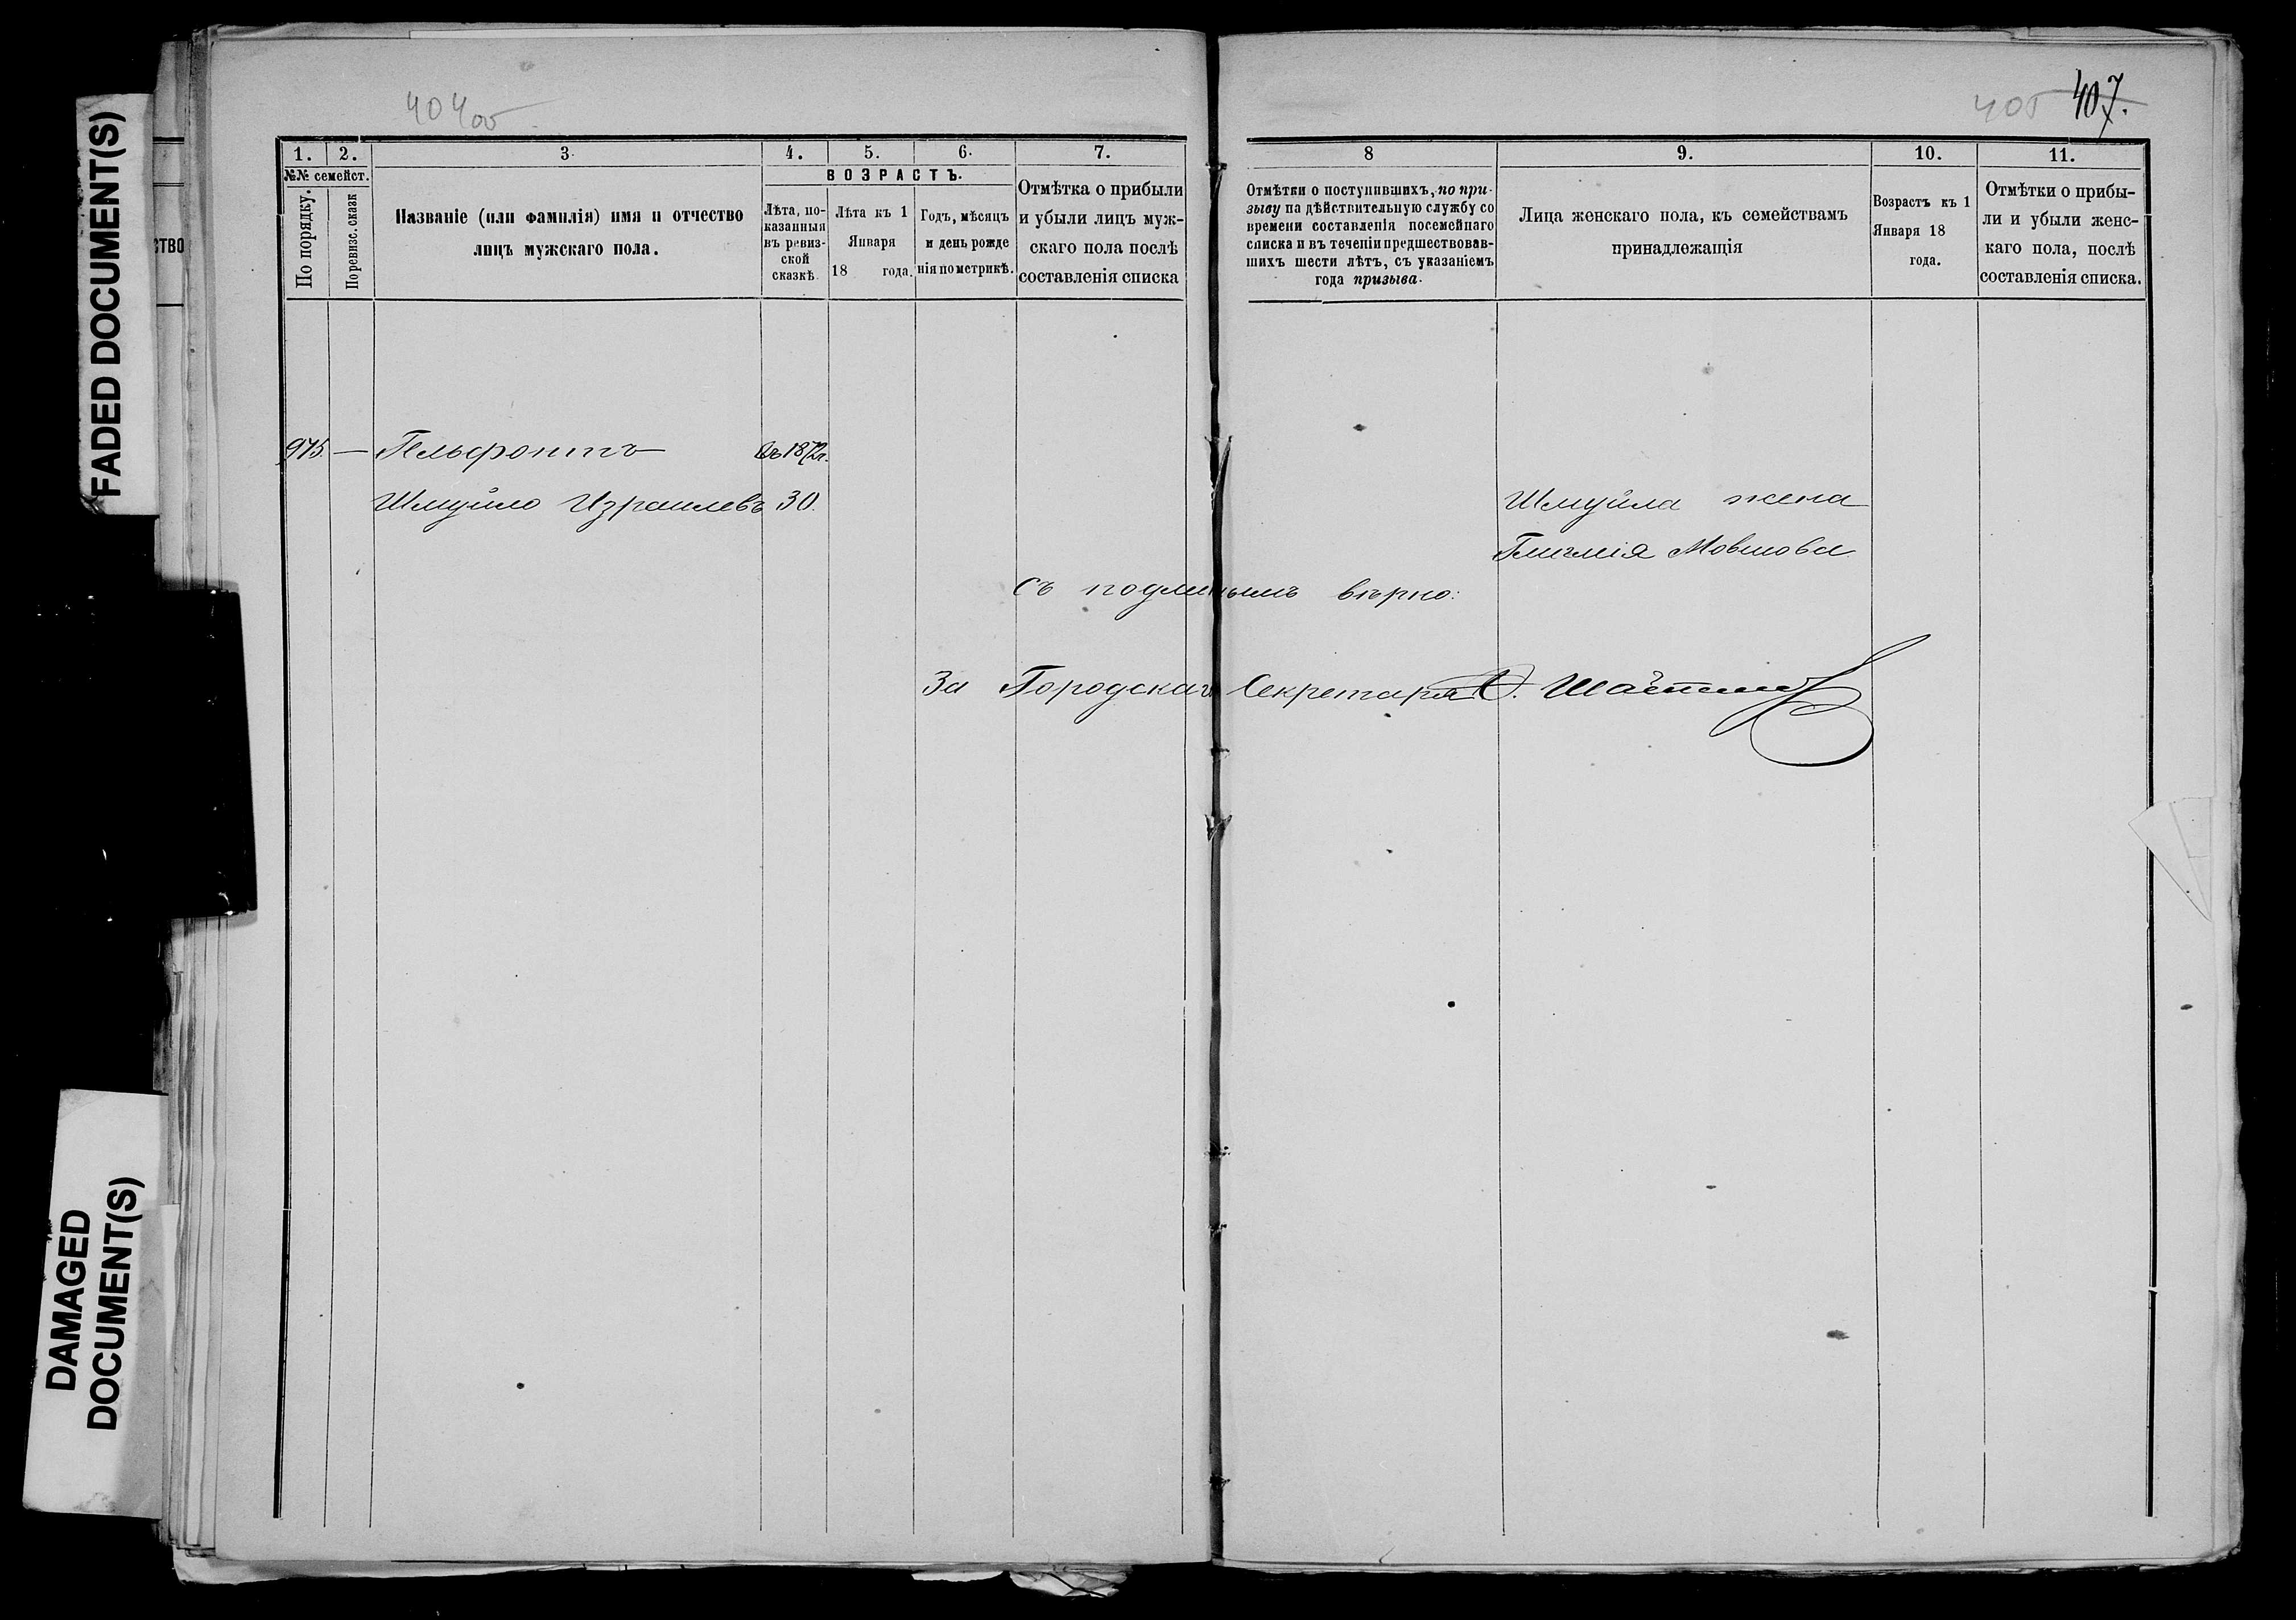 FADED DOCUMENT(S)
DAMAGED
DOCUMENT(S)
СТВО
404об
405 407.
1. 2. 3. 4. 5. 6. 7.
№№ семейст.
По порядку.
По ревизс. сказк
Названіе (или фамилія) имя и отчество
лицъ мужскаго пола.
ВОЗРАСТЪ.
Лѣта, по-
казанныя
въ ревиз-
ской
сказкѣ
Лѣта къ 1
Января
18 года.
Годъ, мѣсяцъ
и день рожде
нія по метрикѣ.
Отмѣтка о прибыли
и убыли лицъ муж-
скаго пола послѣ
составленія списка
8 9. 10. 11.
Отмѣтки о поступившихъ, по при-
зыву на дѣйствительную службу со
времени составленія посемейнаго
списка и въ теченіи предшествовав-
шихъ шести лѣтъ, съ указаніемъ
года призыва.
Лица женскаго пола, къ семействамъ
принадлежащія
Возрастъ къ 1
Января 18
года.
Отмѣтки о прибы-
ли и убыли женс-
каго пола, послѣ
составленія списка.
975. — Гельфонтъ Въ 1872г.
Шмуйло Израилевъ 30.
Шмуйла жена
Мовшова
Съ подлинымъ вѣрно:
За Городскаго Секретаря